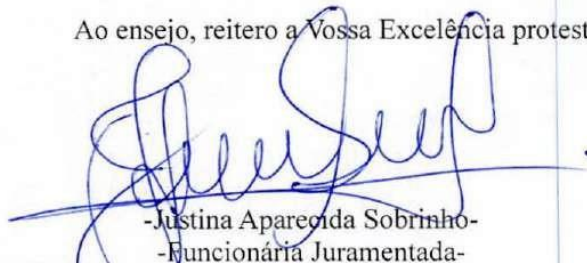 Ao ensejo, reitero a Vossa Excelência protest
-Justina Aparecida Sobrinho-
-Funcionária Juramentada-